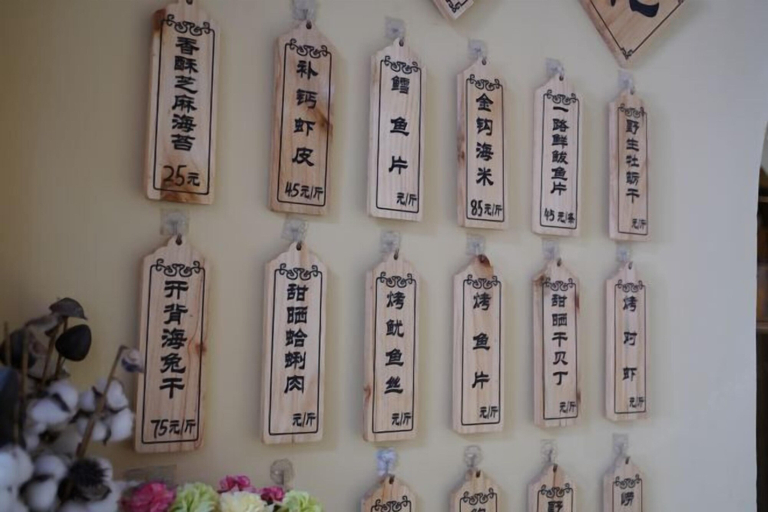 香酥芝麻海苔
25元
补钙虾皮
45元/斤
鳕鱼片
元/斤
金钩海米
85元/斤
一路鲜鮁鱼片
45元/条
野生牡蛎干
元/斤
开背海兔干
75元/斤
甜晒蛤蜊肉
元/斤
烤鱿鱼丝
元/斤
烤鱼片
元/斤
甜晒干贝丁
元/斤
烤对虾
元/斤